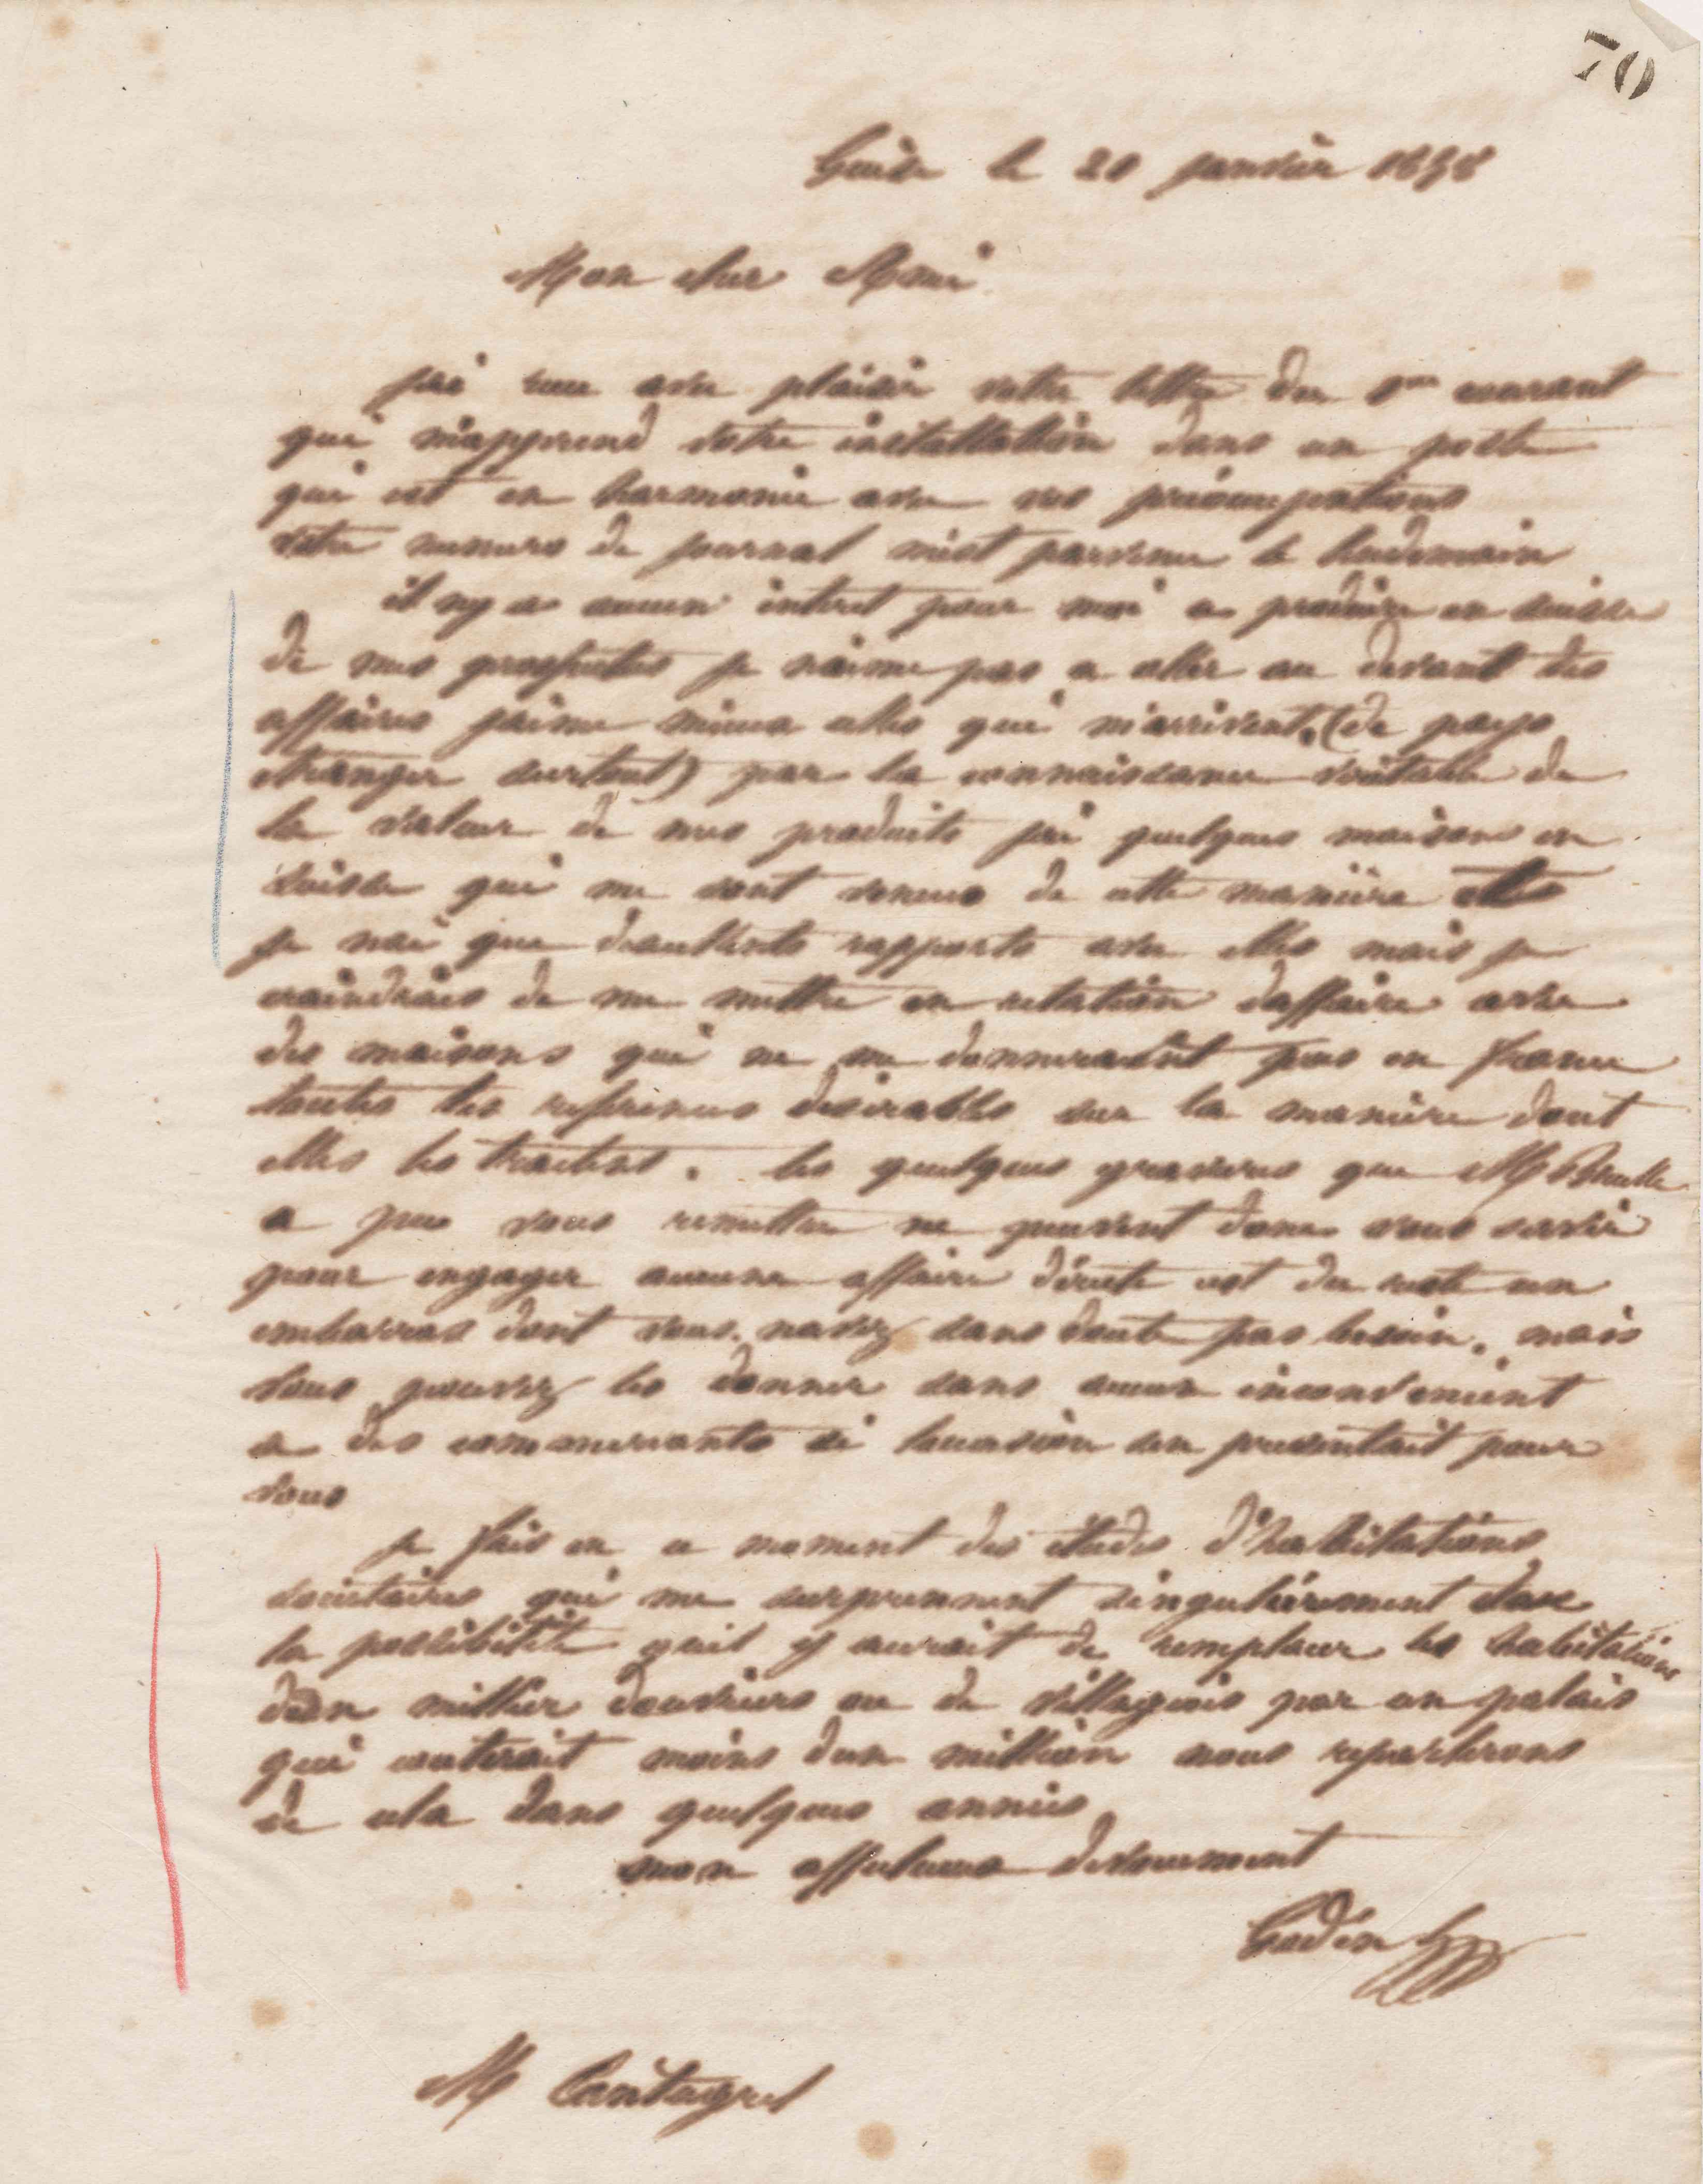 70
Guise le 20 janvier 1858
Mon cher Ami
jai recu avec plaisir votre lettre du courant
qui m'apprend votre installation dans un poste
qui est en harmonie avec vos préoccupations
votre numero de journal m'est parvenu le lendemain
il ny a aucun interet pour moi a produire en suisse
de mes prospectus je n'aime pas a aller au devant des
affaires jaime mieux celles qui m'arrivent (de pays
etranger surtout) par la connaissance véritable de
la valeur de mes produits jai quelques maisons en
Suisse qui me sont venues de cette manière
je nai que dexcellents rapports avec elles mais je
craindrais de me mettre en relation daffaire avec
des maisons qui ne me donneraient pas en france
toutes les references desirables sur la manière dont
elles les traitent. les quelques gravures que M
a pu vous remettre ne peuvent donc vous servir
pour engager aucune affaire directe cest du reste un
embarras dont vous navez sans doute pas besoin. mais
vous pouvez les donner sans aucun inconvenient
a des commercants si loccasion sen presentait pour
vous
je fais en ce moment des études d'habitations
societaires qui me surprennent singulièrement dans
la possibilité quil y aurait de remplacer les habitations
dun millier douvriers ou de villageois par un palais
qui couterait moins dun million nous reparlerons
de cela dans quelques années
mon affectueux devouement
Godin
M Cantagrel